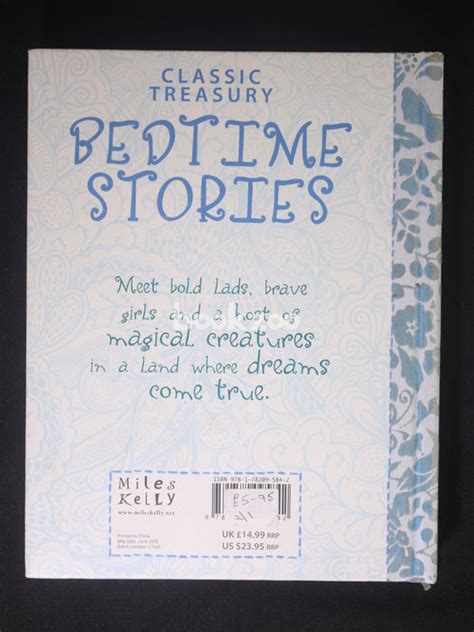 CLASSIC
TREASURY
BEDTIME
STORIES
Meet bold lads, brave
girls and a host of
magical creatures
in a land where dreams
come true.
Miles
Kelly
www.mileskelly.net
Printed in China
ISBN 978-1-78209-584-2
£5-95
2/1
9 78
UK £14.99 RRP
US $23.95 RRP